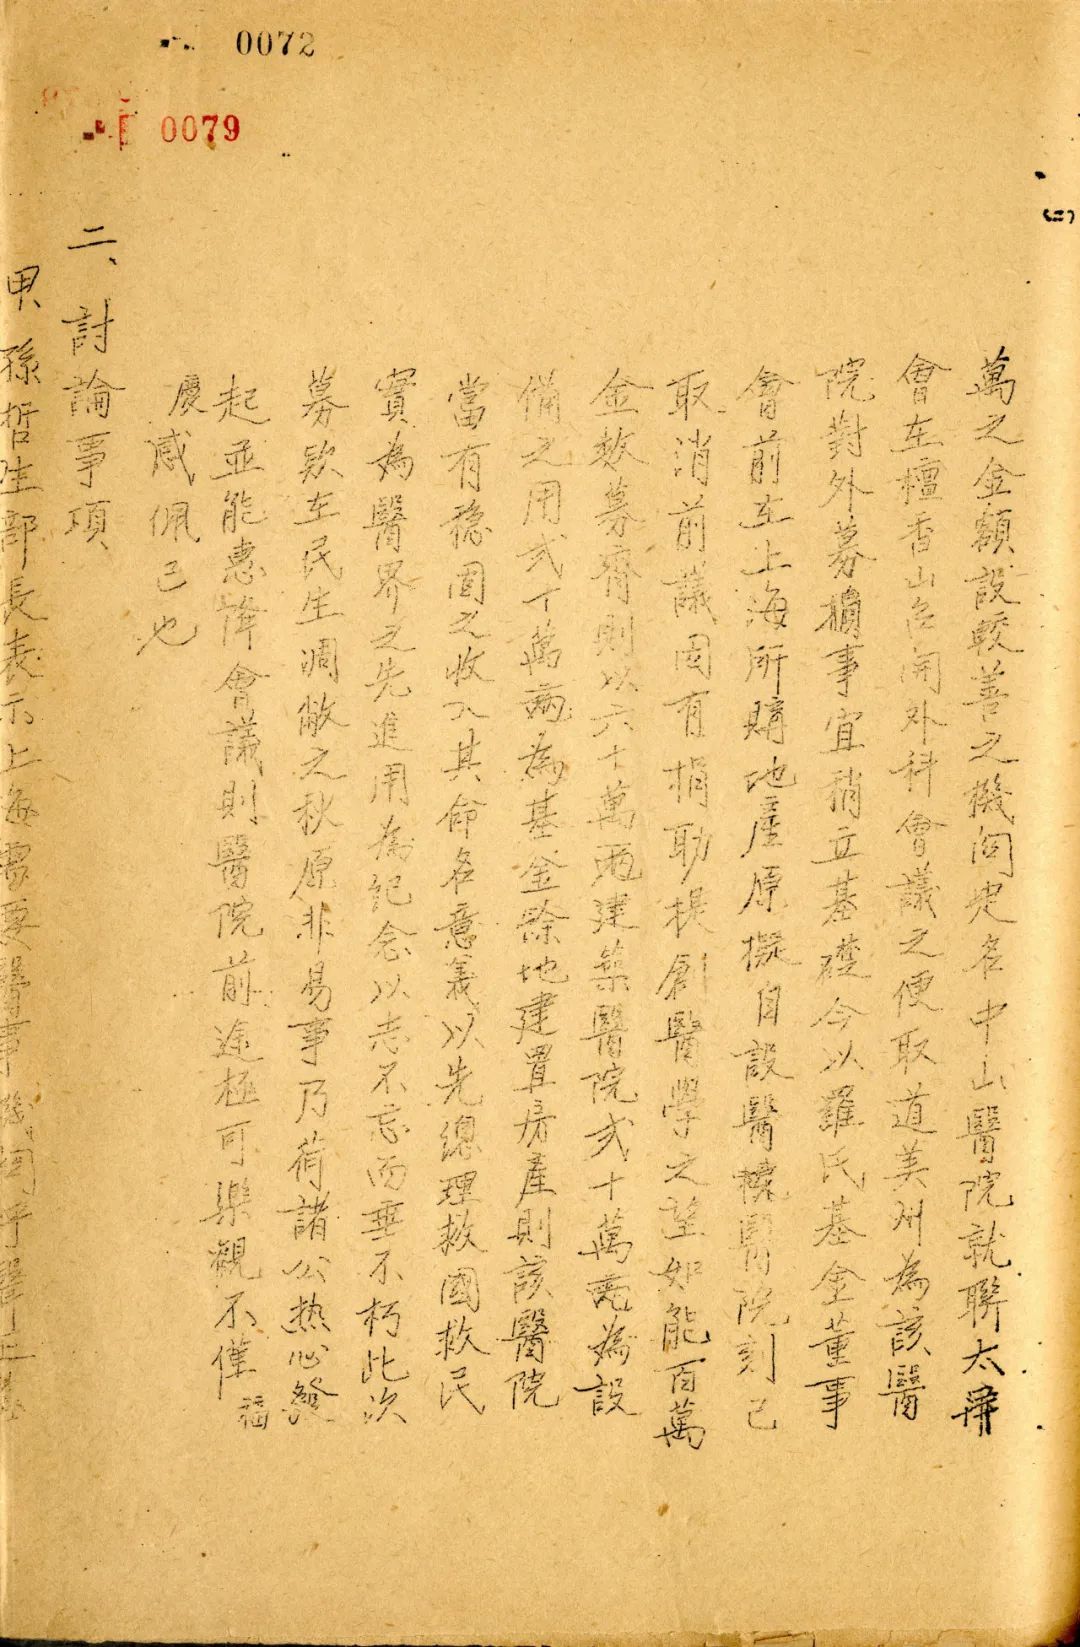 0072
0079
萬之金額設較善之機関定名中山醫院就聯太平
會在檀香山召開外科會議之便取道美州為該醫
院對外募捐事宜稍立基礎今以羅氏基金董事
會前在上海所購地產原擬自設醫校醫院刻已
取消前議因有捐助提創醫學之望如能百萬
金款募齊則以六十萬兩建築醫院弍十萬兩為設
備之用弍十萬兩為基金除地建置房產則該醫院
當有穩固之收入其命名意義以先總理救國救民
實為醫界之先進用為紀念以志不忘而垂不朽此次
募欵在民生凋敝之秋原非易事乃荷諸公热心發
起並能惠降會議則醫院前途極可樂觀不僅福
慶感佩已也
二、討論事項
甲、孫哲生部長表示上海需要醫事機関